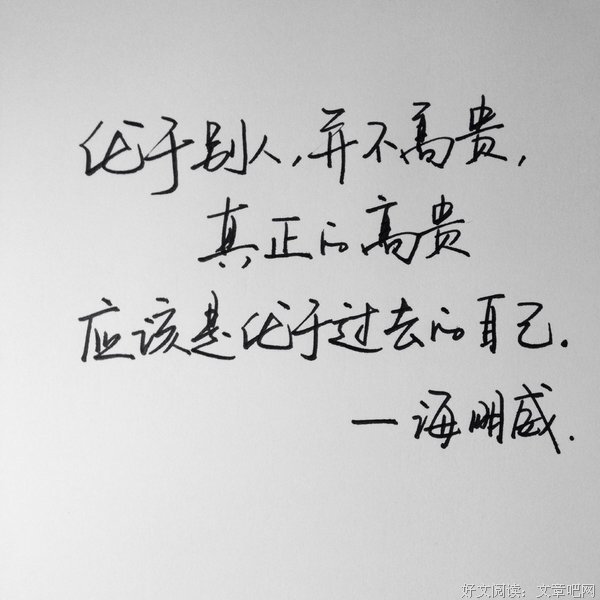 优于别人,并不高贵,
真正的高贵
应该是优于过去的自己.
一海明威.
好文阅读：文章吧网